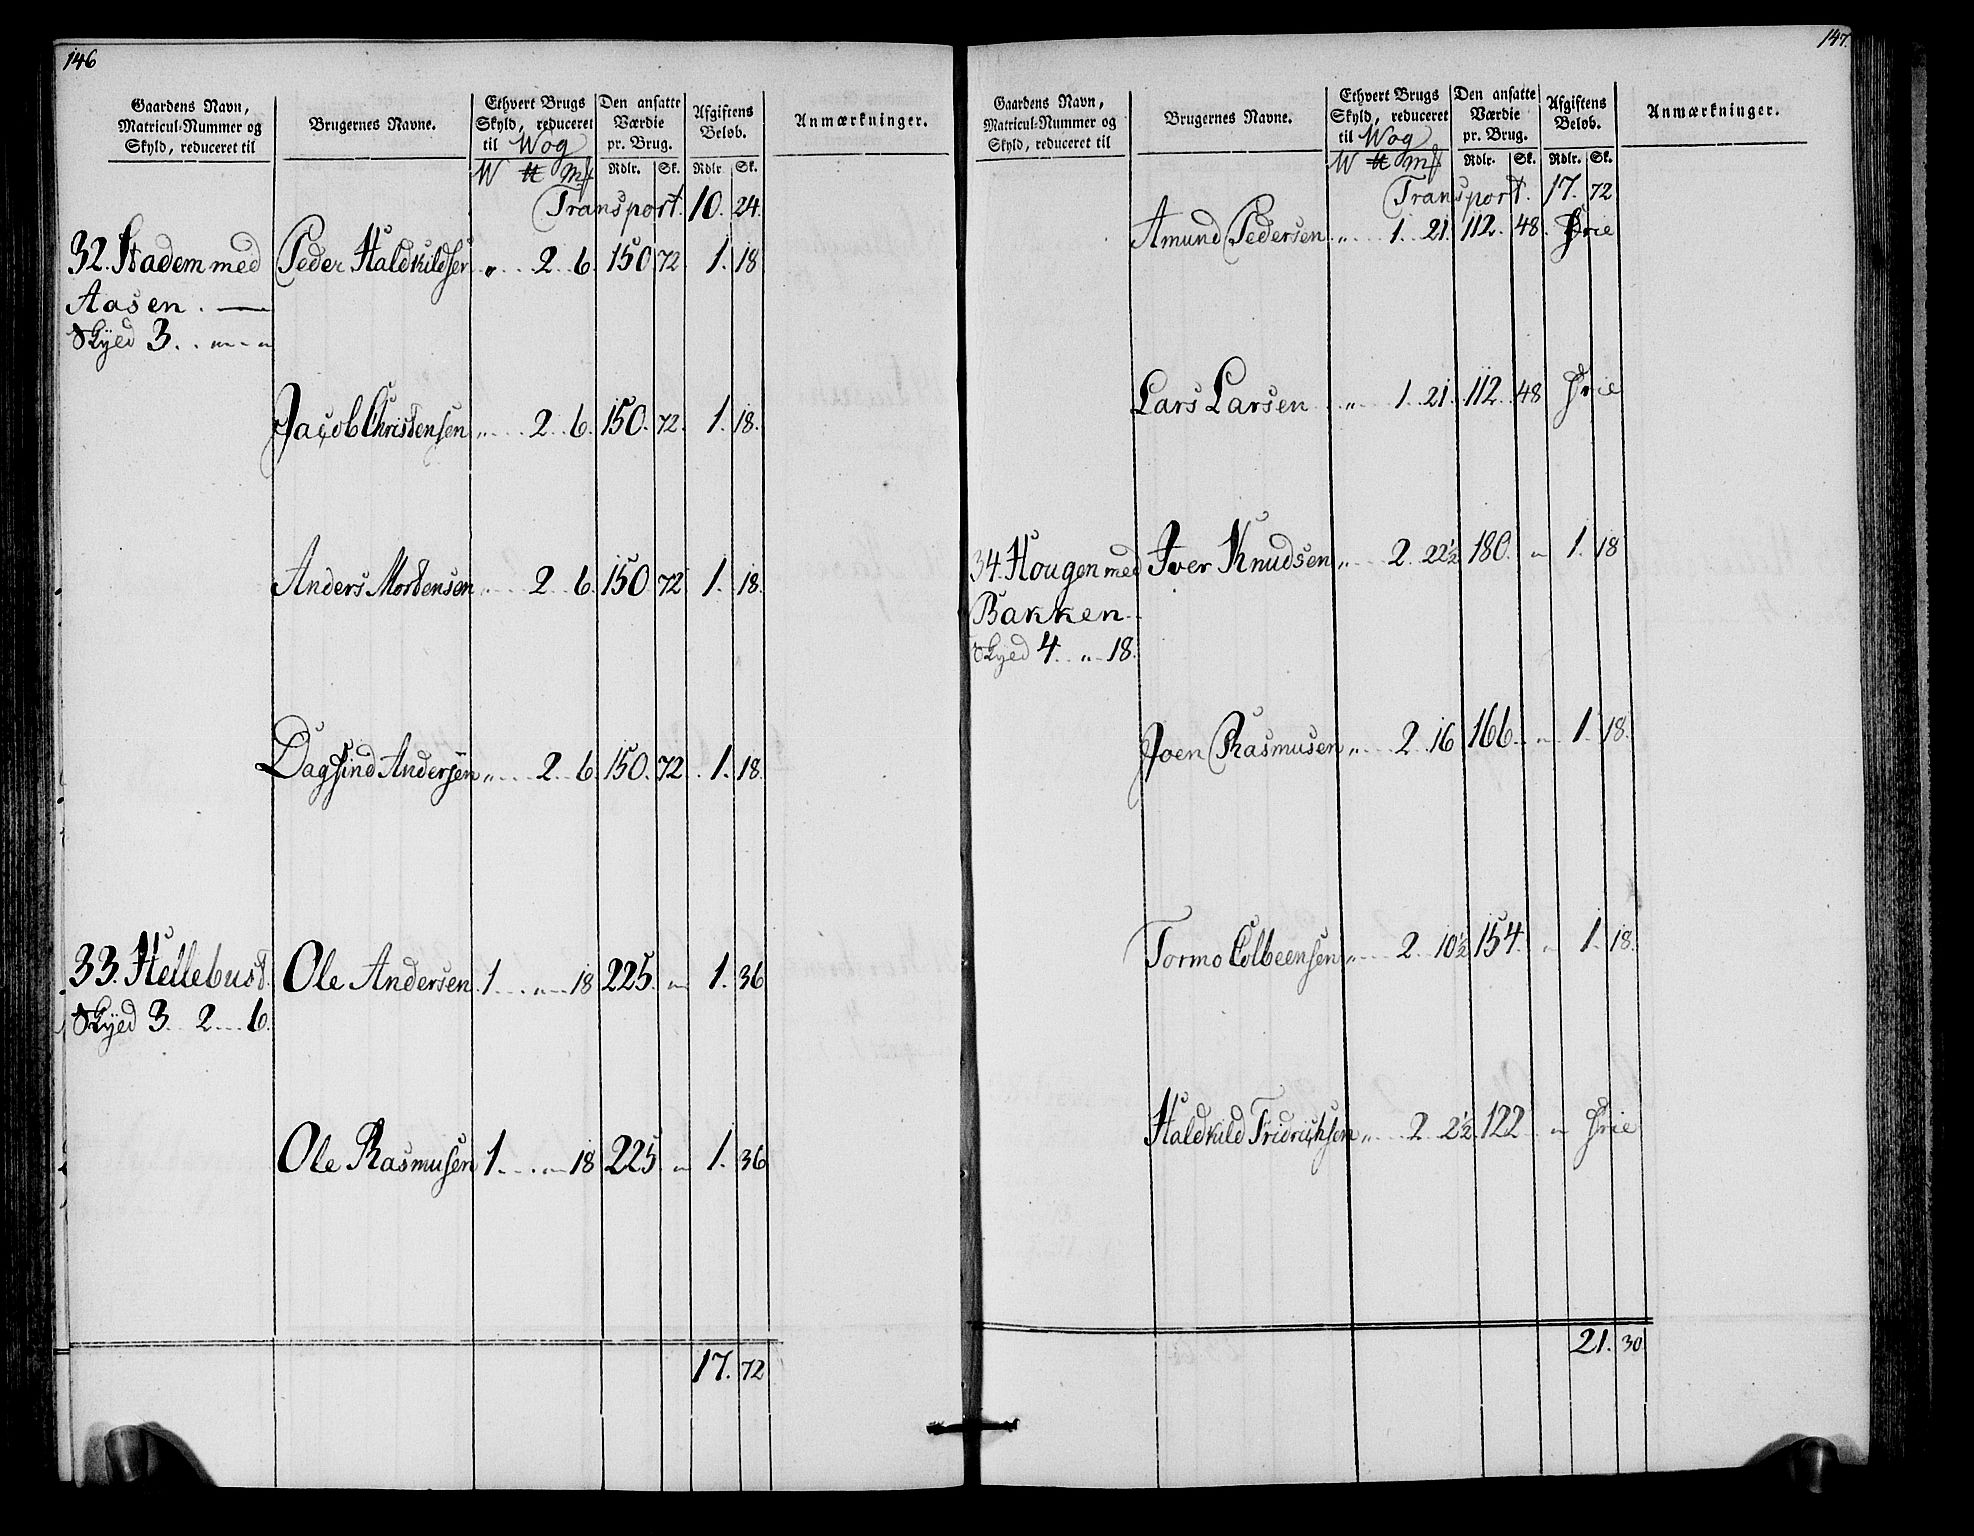 146
Gaardens Navn, Matricul-Nummer og Skyld, reduceret til
Brugernes Navne.
Ethvert Brugs Skyld, reduceret til Wog
W ℔ Mk
Den ansatte Værdie pr. Brug.
Rdlr. Sk.
Afgiftens Beløb.
Rdlr. Sk.
Anmærkninger.
Transport. 10. 24.
32. Stadem med Peder Haldkildsen „ 2 6. 150 72. 1. 18.
Aasen. —
Skyed 3. „ - „
Jacob Christensen „ 2 6. 150. 72. 1. 18.
Anders Mortensen „ 2 6. 150 72 1. 18.
Dagfind Andersen „ 2 6. 150. 72. 1. 18.
33. Hellebust. Ole Andersen 1 „ 18 225. „ 1. 36
Skyed 3. 2 6.
Ole Rasmusen 1 „ 18 225 „ 1. 36
17. 72
147.
Gaardens Navn, Matricul-Nummer og Skyld, reduceret til
Brugernes Navne.
Ethvert Brugs Skyld, reduceret til Wog
W ℔ Mk
Den ansatte Værdie pr. Brug.
Rdlr. Sk.
Afgiftens Beløb.
Rdlr. Sk.
Anmærkninger.
Transport. 17. 72
Amund Pedersen „ 1. 21. 112. 48. Frie
Lars Larsen „ 1 21. 112. 48 Frie
34. Hougen med Iver Knudsen „ 2 22½ 180. „ 1. 18
Bakken.
Skyed 4. „ 18.
Joen Rasmusen „ 2 16 166. „ 1. 18.
Tormo Colbeensen „ 2 10½ 154. „ 1. 18.
Haldkild Fridrichsen „ 2 2½ 122 „ Frie
21. 30